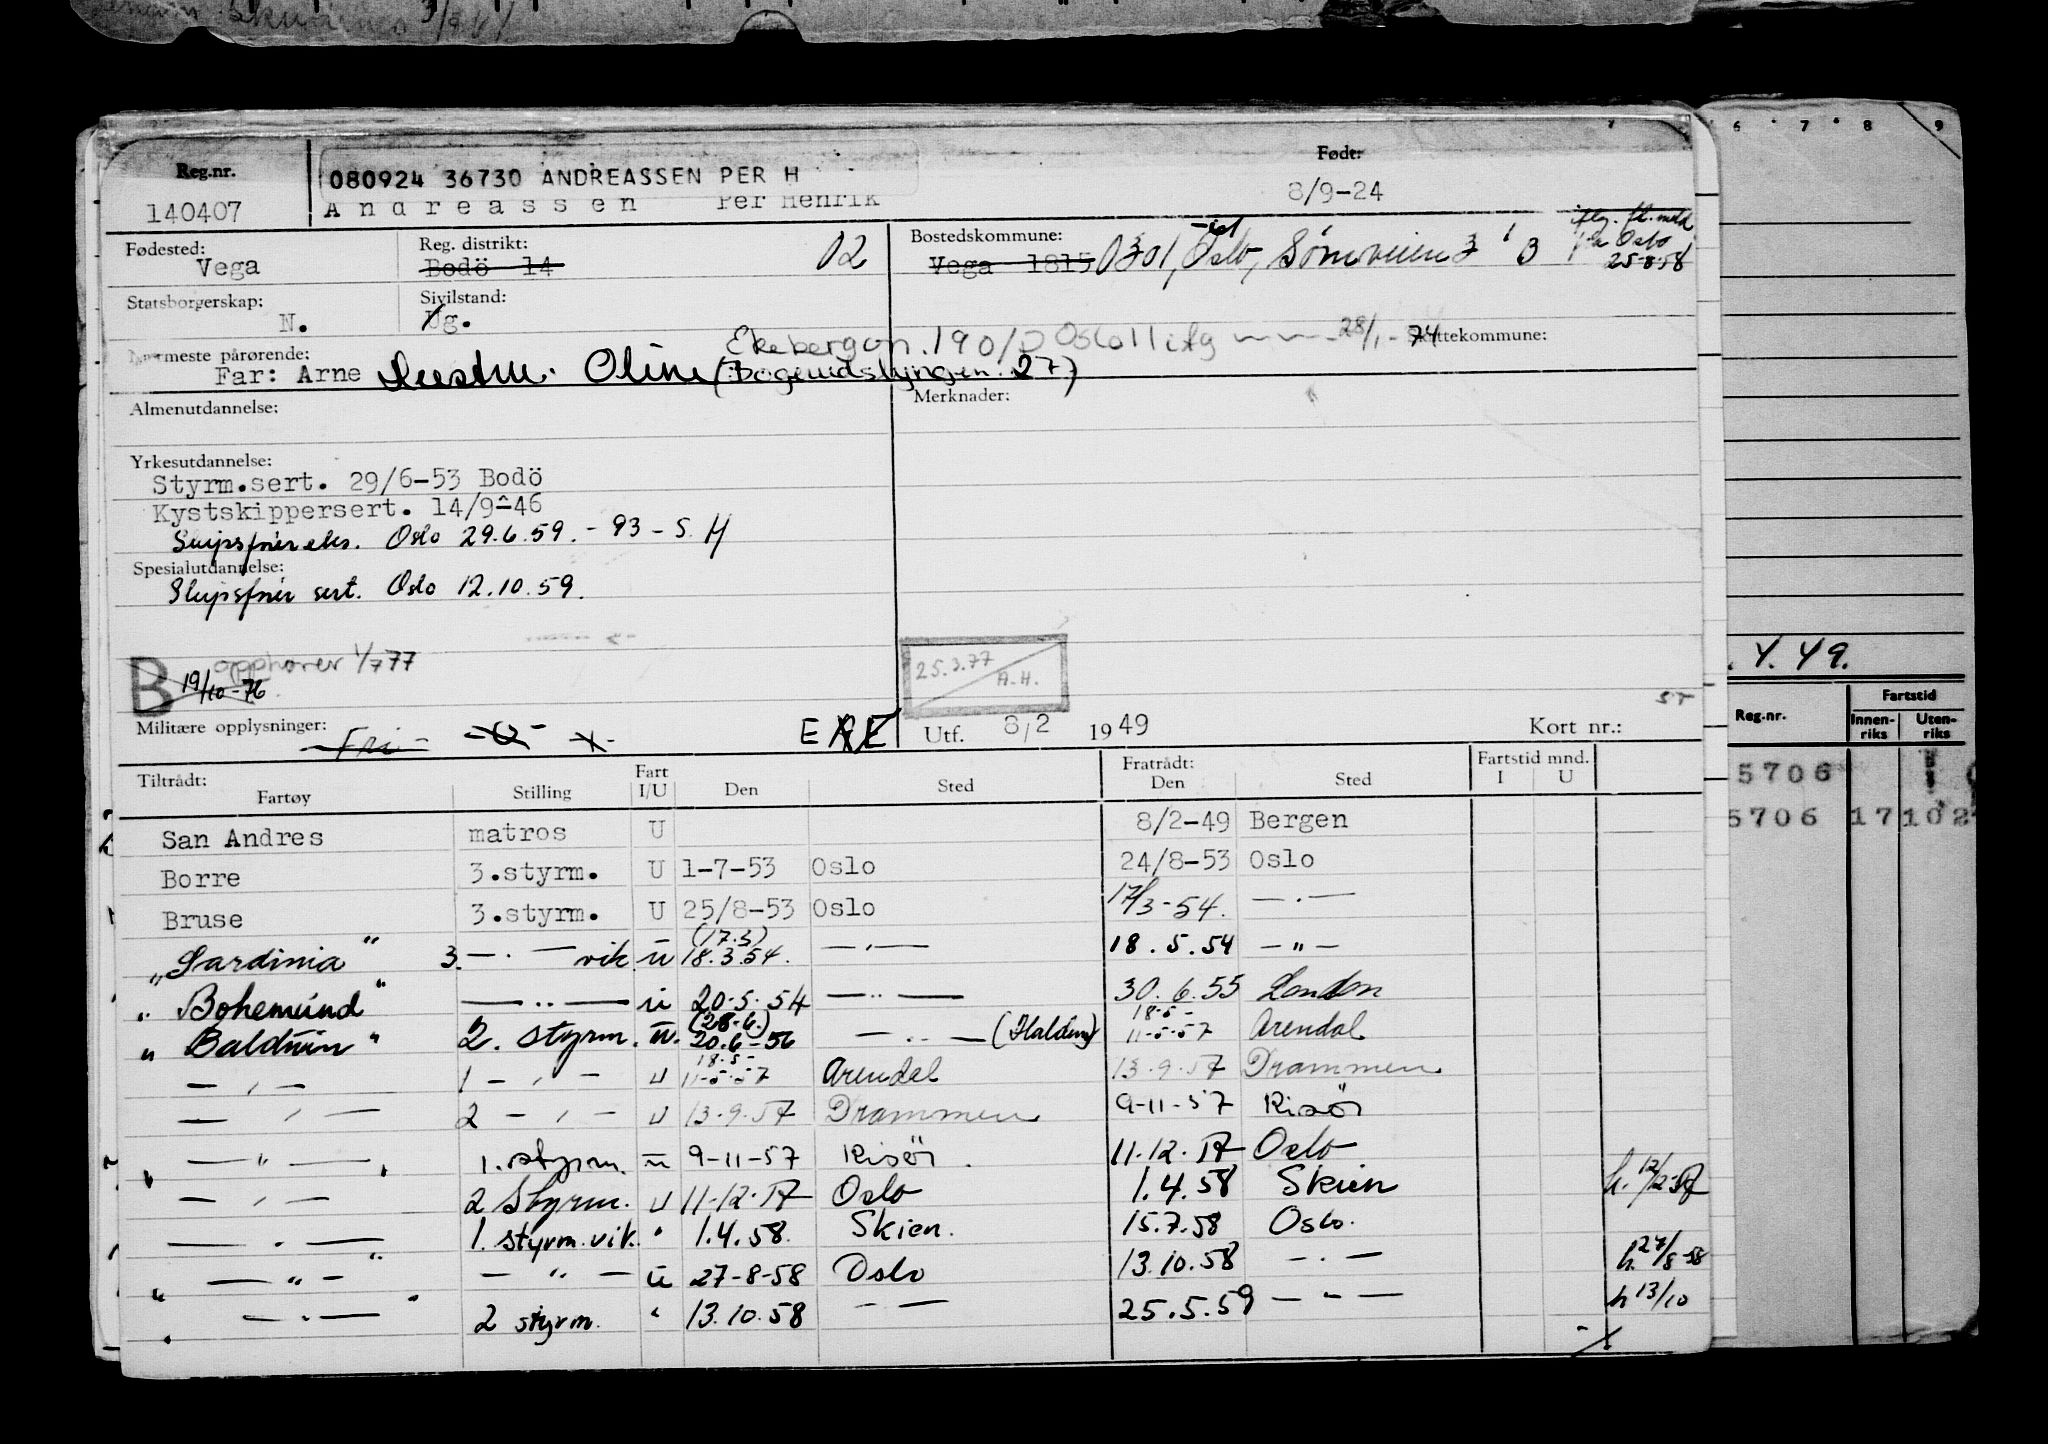 Reg.nr. Født:
080924 36730 ANDREASSEN PER H
140407 Andreassen Per Henrik 8/9-24
Fødested: Reg. distrikt: 02 Bostedskommune:
Vega Bodö 14 Vega 1815 0301, Oslo, Oslo 25-8-58
Statsborgerskap: Sivilstand:
N. Ug.
Ekebergvn. 190/D Oslo 11 28/1-74 Skattekommune:
Nærmeste pårørende:
Far: Arne Hustru. Oline
Almenutdannelse: Merknader:
Yrkesutdannelse:
Styrm.sert. 29/6-53 Bodö
Kystskippersert. 14/9-46
Skipsfører eks. Oslo 29.6.59. - 93 - S. H
Spesialutdannelse:
Skipsfører sert. Oslo 12.10.59.
opphører 1/7 77
B 19/10-76
25.3.77
A.H.
Militære opplysninger: Fri Utf. 8/2 1949 Kort nr.:
Tiltrådt: Fratrådt: Fartstid mnd.
Fartøy Stilling Fart I/U Den Sted Den Sted I U
San Andres matros U 8/2-49 Bergen
Borre 3.styrm. U 1-7-53 Oslo 24/8-53 Oslo
Bruse 3.styrm. U 25/8-53 Oslo 17/3-54. — . —
"Sardinia" 3. — . — vik. u (17.3) 18.3.54. — . — 18.5.54 — " —
"Bohemund" — .. — u 20.5.54 — .. — 30.6.55 London
"Balduin" 2. styrm. u. (28.6.) 20.6-56 — .. — (Halden) 18-5- 11-5-57 Arendal
— , — 1 — , — u 18-5- 11-5-57 Arendal 13.9.57 Drammen
— , — 2 — , — u 13.9.57 Drammen 9-11-57 Risör
— " — 1. styrm. u 9-11-57 Risör. 11-12-57 Oslo
— , — 2 styrm. u 11-12-57 Oslo 1.4.58 Skien
— . — 1. styrm. vik. " 1.4.58. Skien. 15.7.58 Oslo.
" — " — " — " — u 27-8-58 Oslo 13.10.58 — . — h. 27/8-58
— . — 2 styrm. " 13.10.58 — — 25.5.59 — " — h 13/10
6 7 8 9
. 4. 49.
Reg.nr. Fartstid
Innenriks Utenriks
5706
5706 17 102